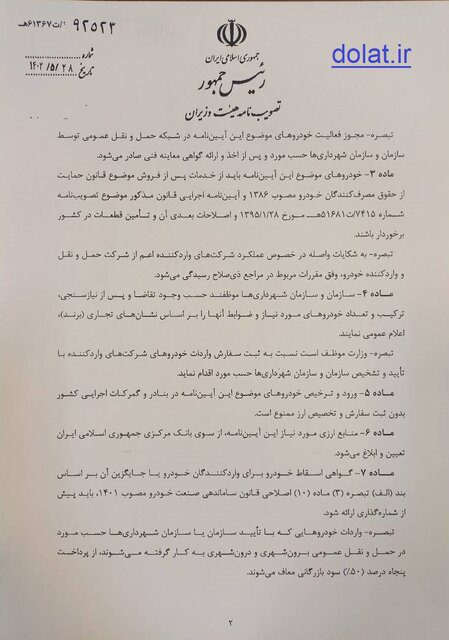 ۹۲۵۲۳/ت۶۱۳۶۷هـ
شماره
تاریخ ۱۴۰۲/۵/۲۸
dolat.ir
جمهوری اسلامی ایران
رئیس جمهور
تصویب نامه هیئت وزیران
تبصره- مجوز فعالیت خودروهای موضوع این آیین‌نامه در شبکه حمل و نقل عمومی توسط
سازمان و سازمان شهرداری‌ها حسب مورد و پس از اخذ و ارائه گواهی معاینه فنی صادر می‌شود.
ماده ۳- خودروهای موضوع این آیین‌نامه باید از خدمات پس از فروش موضوع قانون حمایت
از حقوق مصرف‌کنندگان خودرو مصوب ۱۳۸۶ و آیین‌نامه اجرایی قانون مذکور موضوع تصویب‌نامه
شماره ۷۴۱۵/ت۵۱۶۸۱هـ مورخ ۱۳۹۵/۱/۲۸ و اصلاحات بعدی آن و تأمین قطعات در کشور
برخوردار باشند.
تبصره- به شکایات واصله در خصوص عملکرد شرکت‌های واردکننده اعم از شرکت حمل و نقل
و واردکننده خودرو، وفق مقررات مربوط در مراجع ذی‌صلاح رسیدگی می‌شود.
ماده ۴- سازمان و سازمان شهرداری‌ها موظفند حسب وجود تقاضا و پس از نیازسنجی،
ترکیب و تعداد خودروهای مورد نیاز و ضوابط آنها را بر اساس نشان‌های تجاری (برند)،
اعلام عمومی نمایند.
تبصره- وزارت موظف است نسبت به ثبت سفارش واردات خودروهای شرکت‌های واردکننده با
تأیید و تشخیص سازمان و سازمان شهرداری‌ها حسب مورد اقدام نماید.
ماده ۵- ورود و ترخیص خودروهای موضوع این آیین‌نامه در بنادر و گمرکات اجرایی کشور
بدون ثبت سفارش و تخصیص ارز ممنوع است.
ماده ۶- منابع ارزی مورد نیاز این آیین‌نامه، از سوی بانک مرکزی جمهوری اسلامی ایران
تعیین و ابلاغ می‌شود.
ماده ۷- گواهی اسقاط خودرو برای واردکنندگان خودرو یا جایگزین آن بر اساس
بند (الف) تبصره (۳) ماده (۱۰) اصلاحی قانون ساماندهی صنعت خودرو مصوب ۱۴۰۱، باید پیش از
شماره‌گذاری ارائه شود.
تبصره- واردات خودروهایی که با تأیید سازمان یا سازمان شهرداری‌ها حسب مورد
در حمل و نقل عمومی برون‌شهری و درون‌شهری به کار گرفته می‌شوند، از پرداخت
پنجاه درصد (۵۰٪) سود بازرگانی معاف می‌شوند.
۲